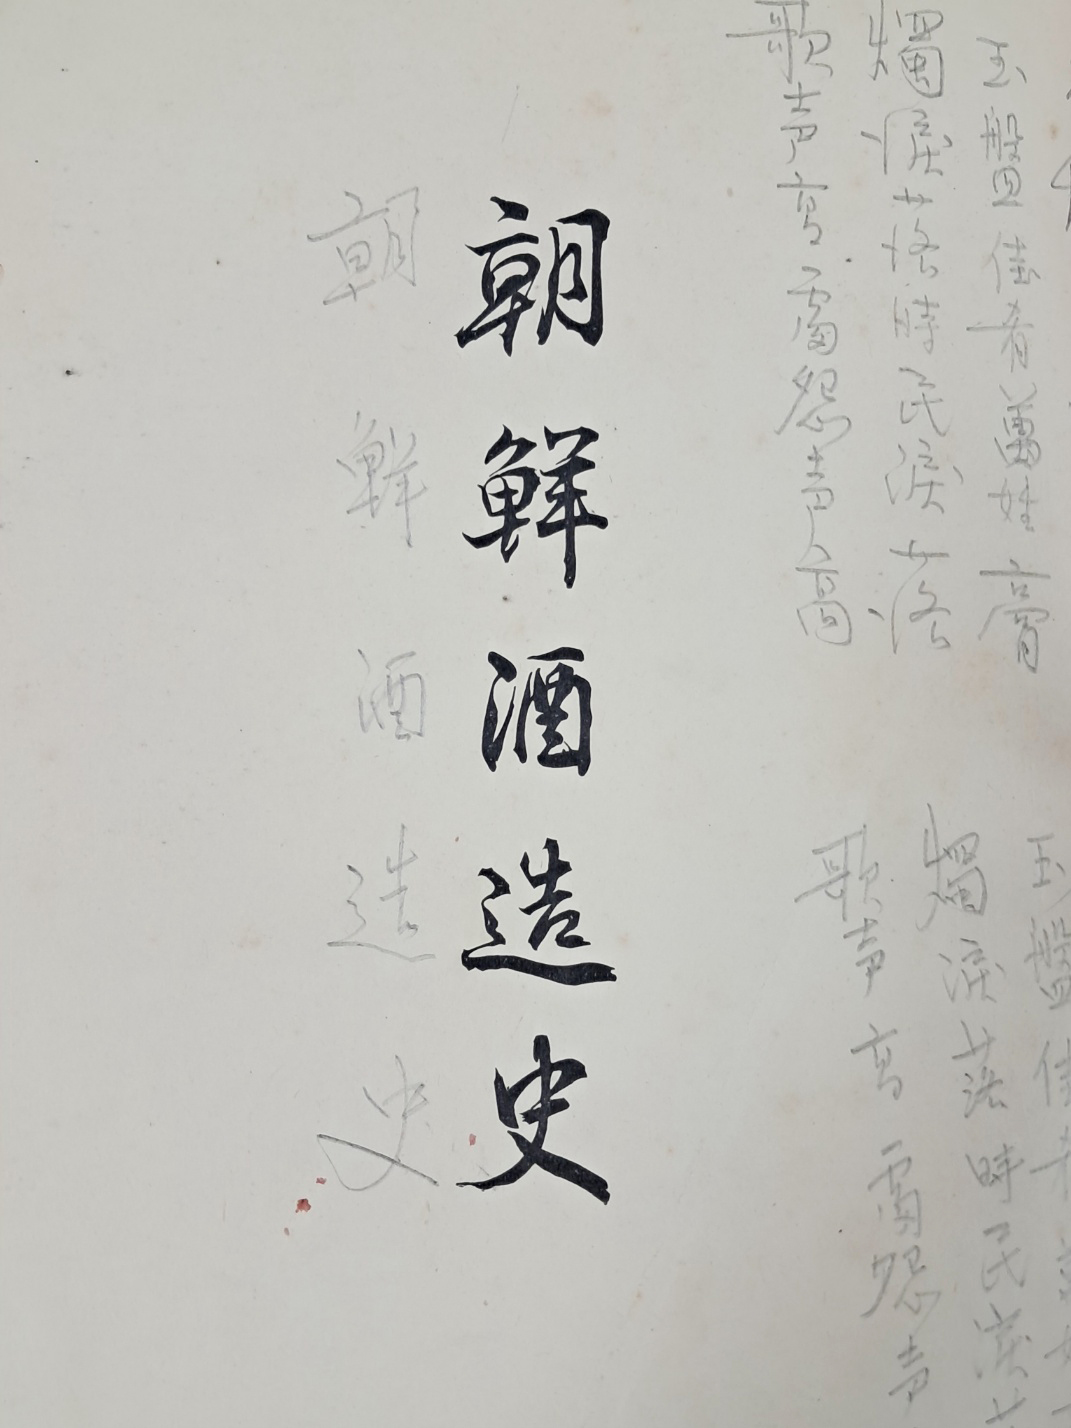 玉盤佳肴萬姓膏
燭淚落時民淚落
歌声高處怨声高
玉盤佳
燭淚落時民淚
歌声高處怨声
朝鮮酒造史
朝鮮酒造史